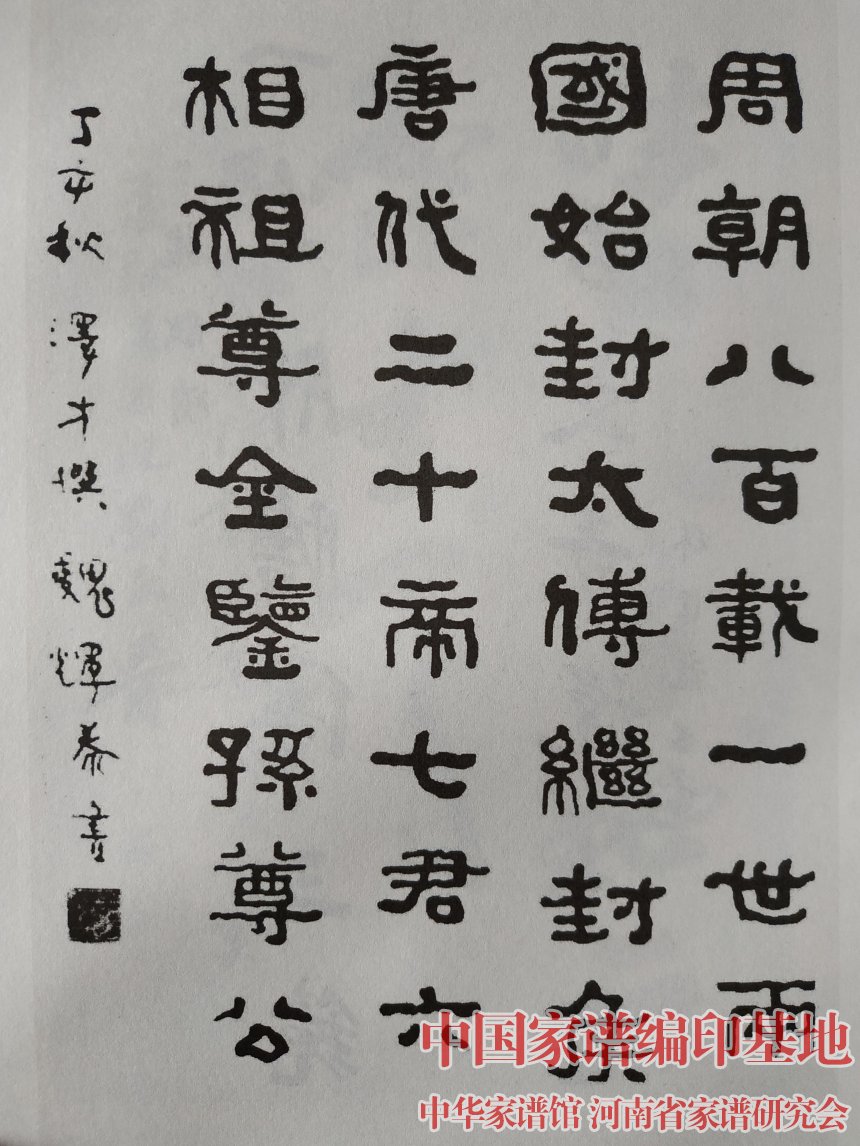 周朝八百載一世兩
國始封太傅繼封
唐代二十帝七君六
相祖尊金鑒孫尊公
丁亥秋 澤才撰 魏輝書
中国家谱编印基地
中华家谱馆 河南省家谱研究会